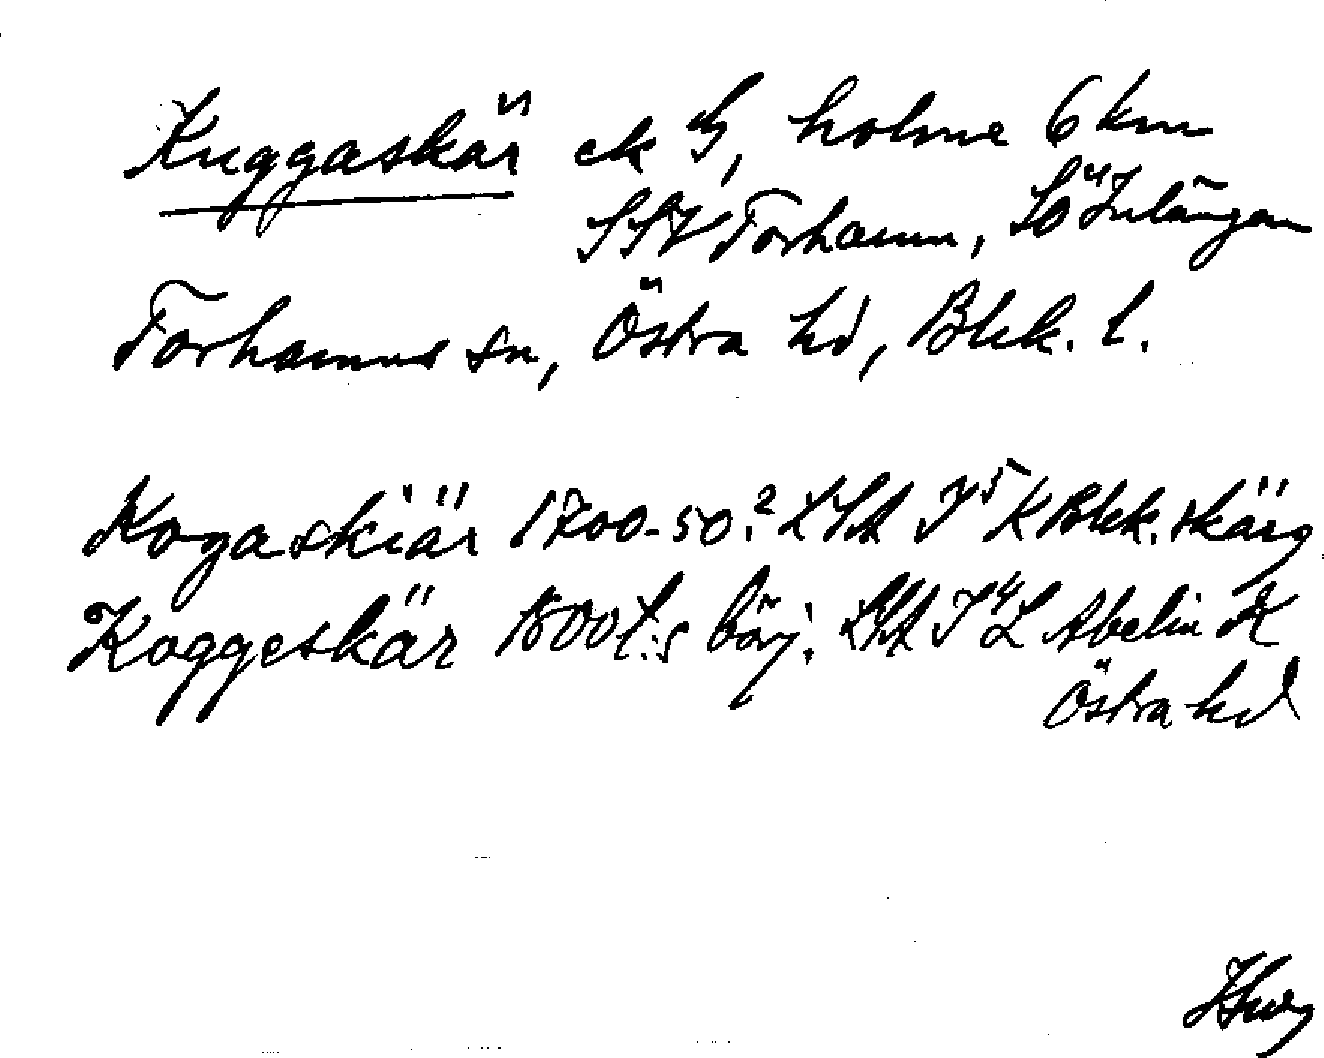 Kuggaskär ek G, holme 6 km
SSV Torhamn, SÖ Inlängan
Torhamns sn, Östra hd, Blek. l.
Kogaskiär 1700-50? LSA I5 K Blek. skärg
Koggeskär 1800t:s börj. LSA I4 L Abelin K
Östra hd